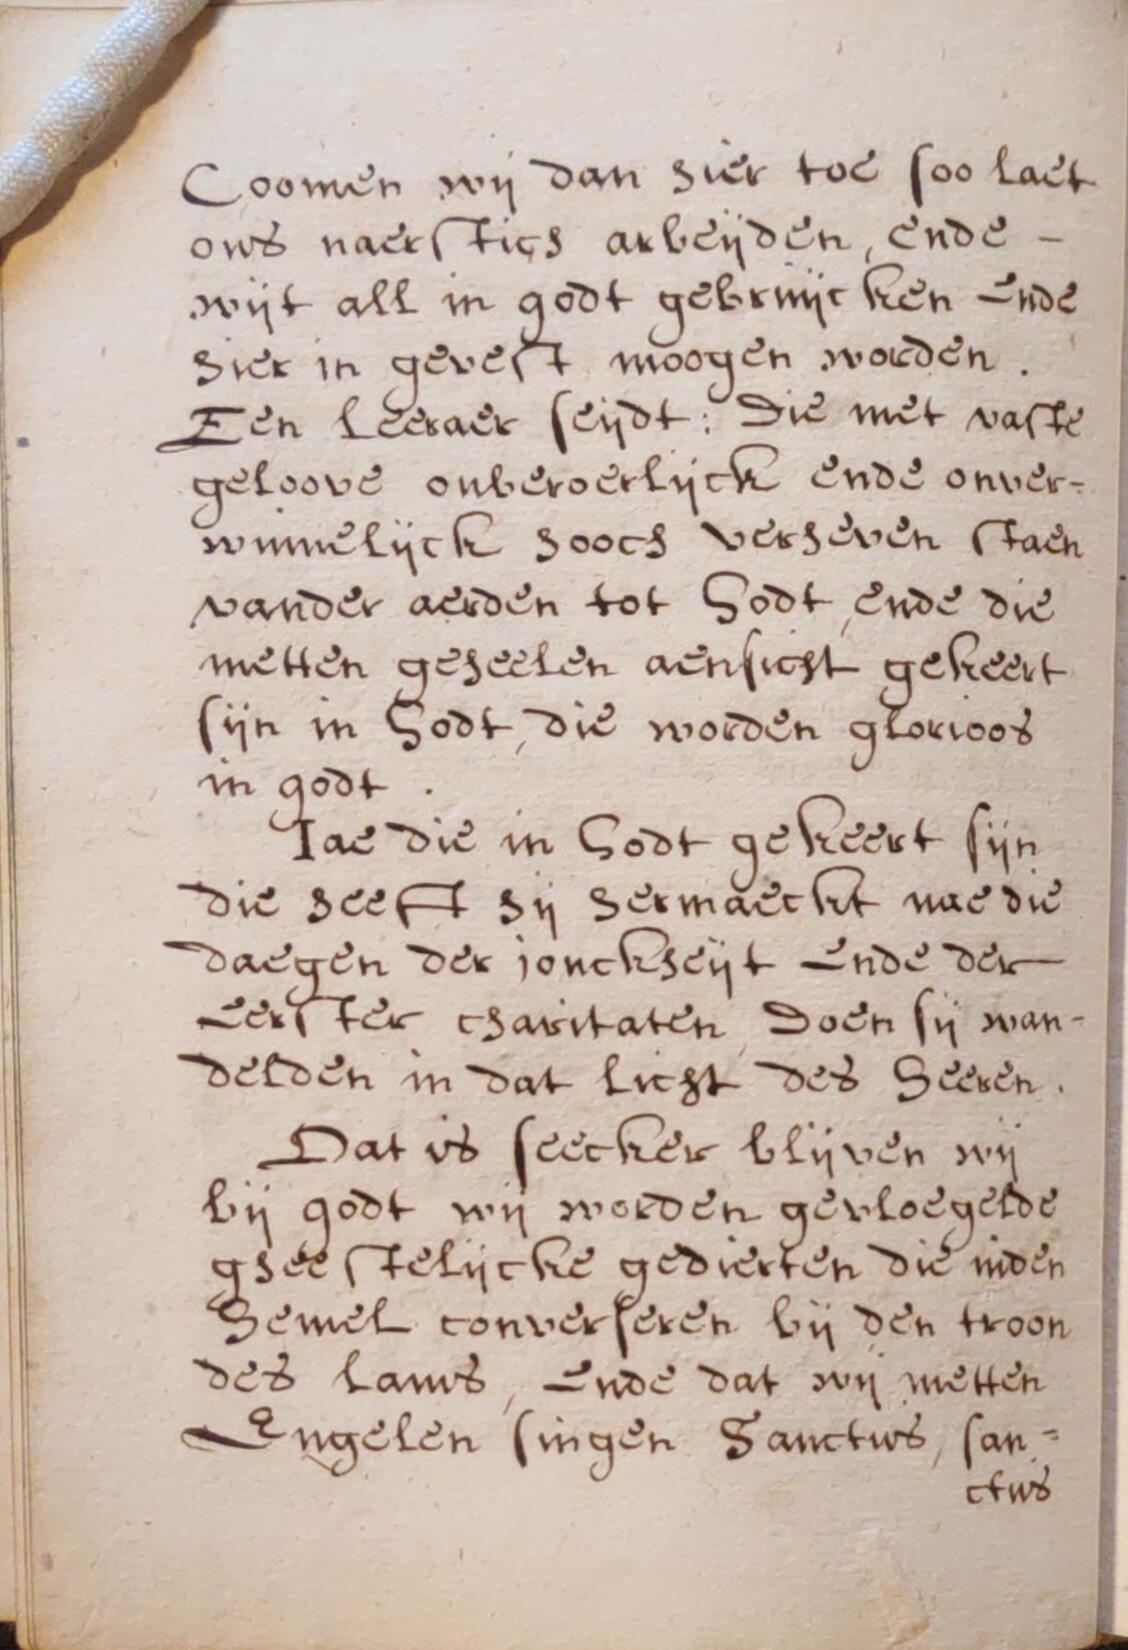 Coomen wij dan hier toe soo laet
ons naerstich arbeijden, ende -
wijt all in godt gebruijcken Ende
hier in gevest moogen worden.
Een Leeraer seijdt: Die met vaste
geloove onberoerlijck ende onver-
winnelijck hooch verheven staen
vander aerden tot Godt, ende die
metten geheelen aensicht gekeert
sijn in Godt, die worden glorioos
in godt.
Iae die in Godt gekeert sijn
die heest hij hermaeckt nae die
daegen der jonckheijt Ende der
Eerster charitaten, Doen sij wan-
delden in dat licht des Heeren.
Dat is seecker blijven wij
bij godt wij worden gevloegelde
gheestelijcke gedierten die inden
Hemel converseren bij den troon
des lams, Ende dat wij metten
Engelen singen Sanctus, san-
ctus